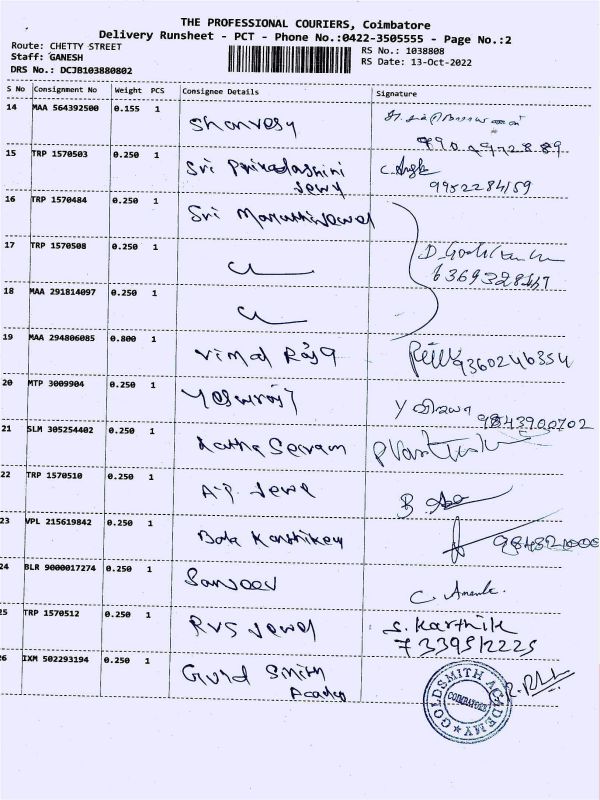 THE PROFESSIONAL COURIERS, Coimbatore
Delivery Runsheet - PCT - Phone No.:0422-3505555 - Page No.:2
Route: CHETTY STREET
RS No.: 1038808
Staff: GANESH
RS Date: 13-Oct-2022
DRS No.: DCJB103880802
S No Consignment No Weight PCS Consignee Details Signature
14 MAA 564392500 0.155 1
15 TRP 1570503 0.250 1 Sri Priyadashini
Jewy 9952284159
16 TRP 1570484 0.250 1 Sri Maruthi Jewel
17 TRP 1570508 0.250 1
18 MAA 291814097 0.250 1
19 MAA 294806085 0.800 1 Vimal Raja 9360246354
20 MTP 3009904 0.250 1
9843900702
21 SLM 305254402 0.250 1 Katha Searam
22 TRP 1570510 0.250 1 A.P. Jewel
23 VPL 215619842 0.250 1 Bala Karthikey
24 BLR 9000017274 0.250 1 Sanjeev
25 TRP 1570512 0.250 1 RVS Jewel S. Karthik
7339512225
26 IXM 502293194 0.250 1 Gold Smith
Academy
GOLDSMITH ACADEMY
COIMBATORE